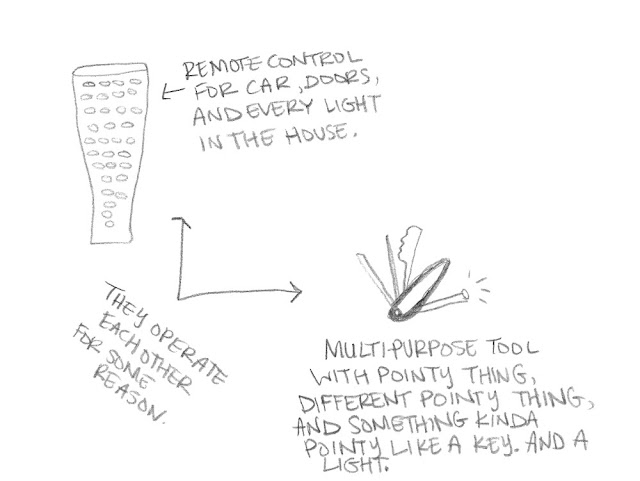 REMOTE CONTROL
FOR CAR, DOORS,
AND EVERY LIGHT
IN THE HOUSE.
THEY OPERATE
EACH OTHER
FOR SOME
REASON.
MULTI-PURPOSE TOOL
WITH POINTY THING,
DIFFERENT POINTY THING,
AND SOMETHING KINDA
POINTY LIKE A KEY. AND A
LIGHT.